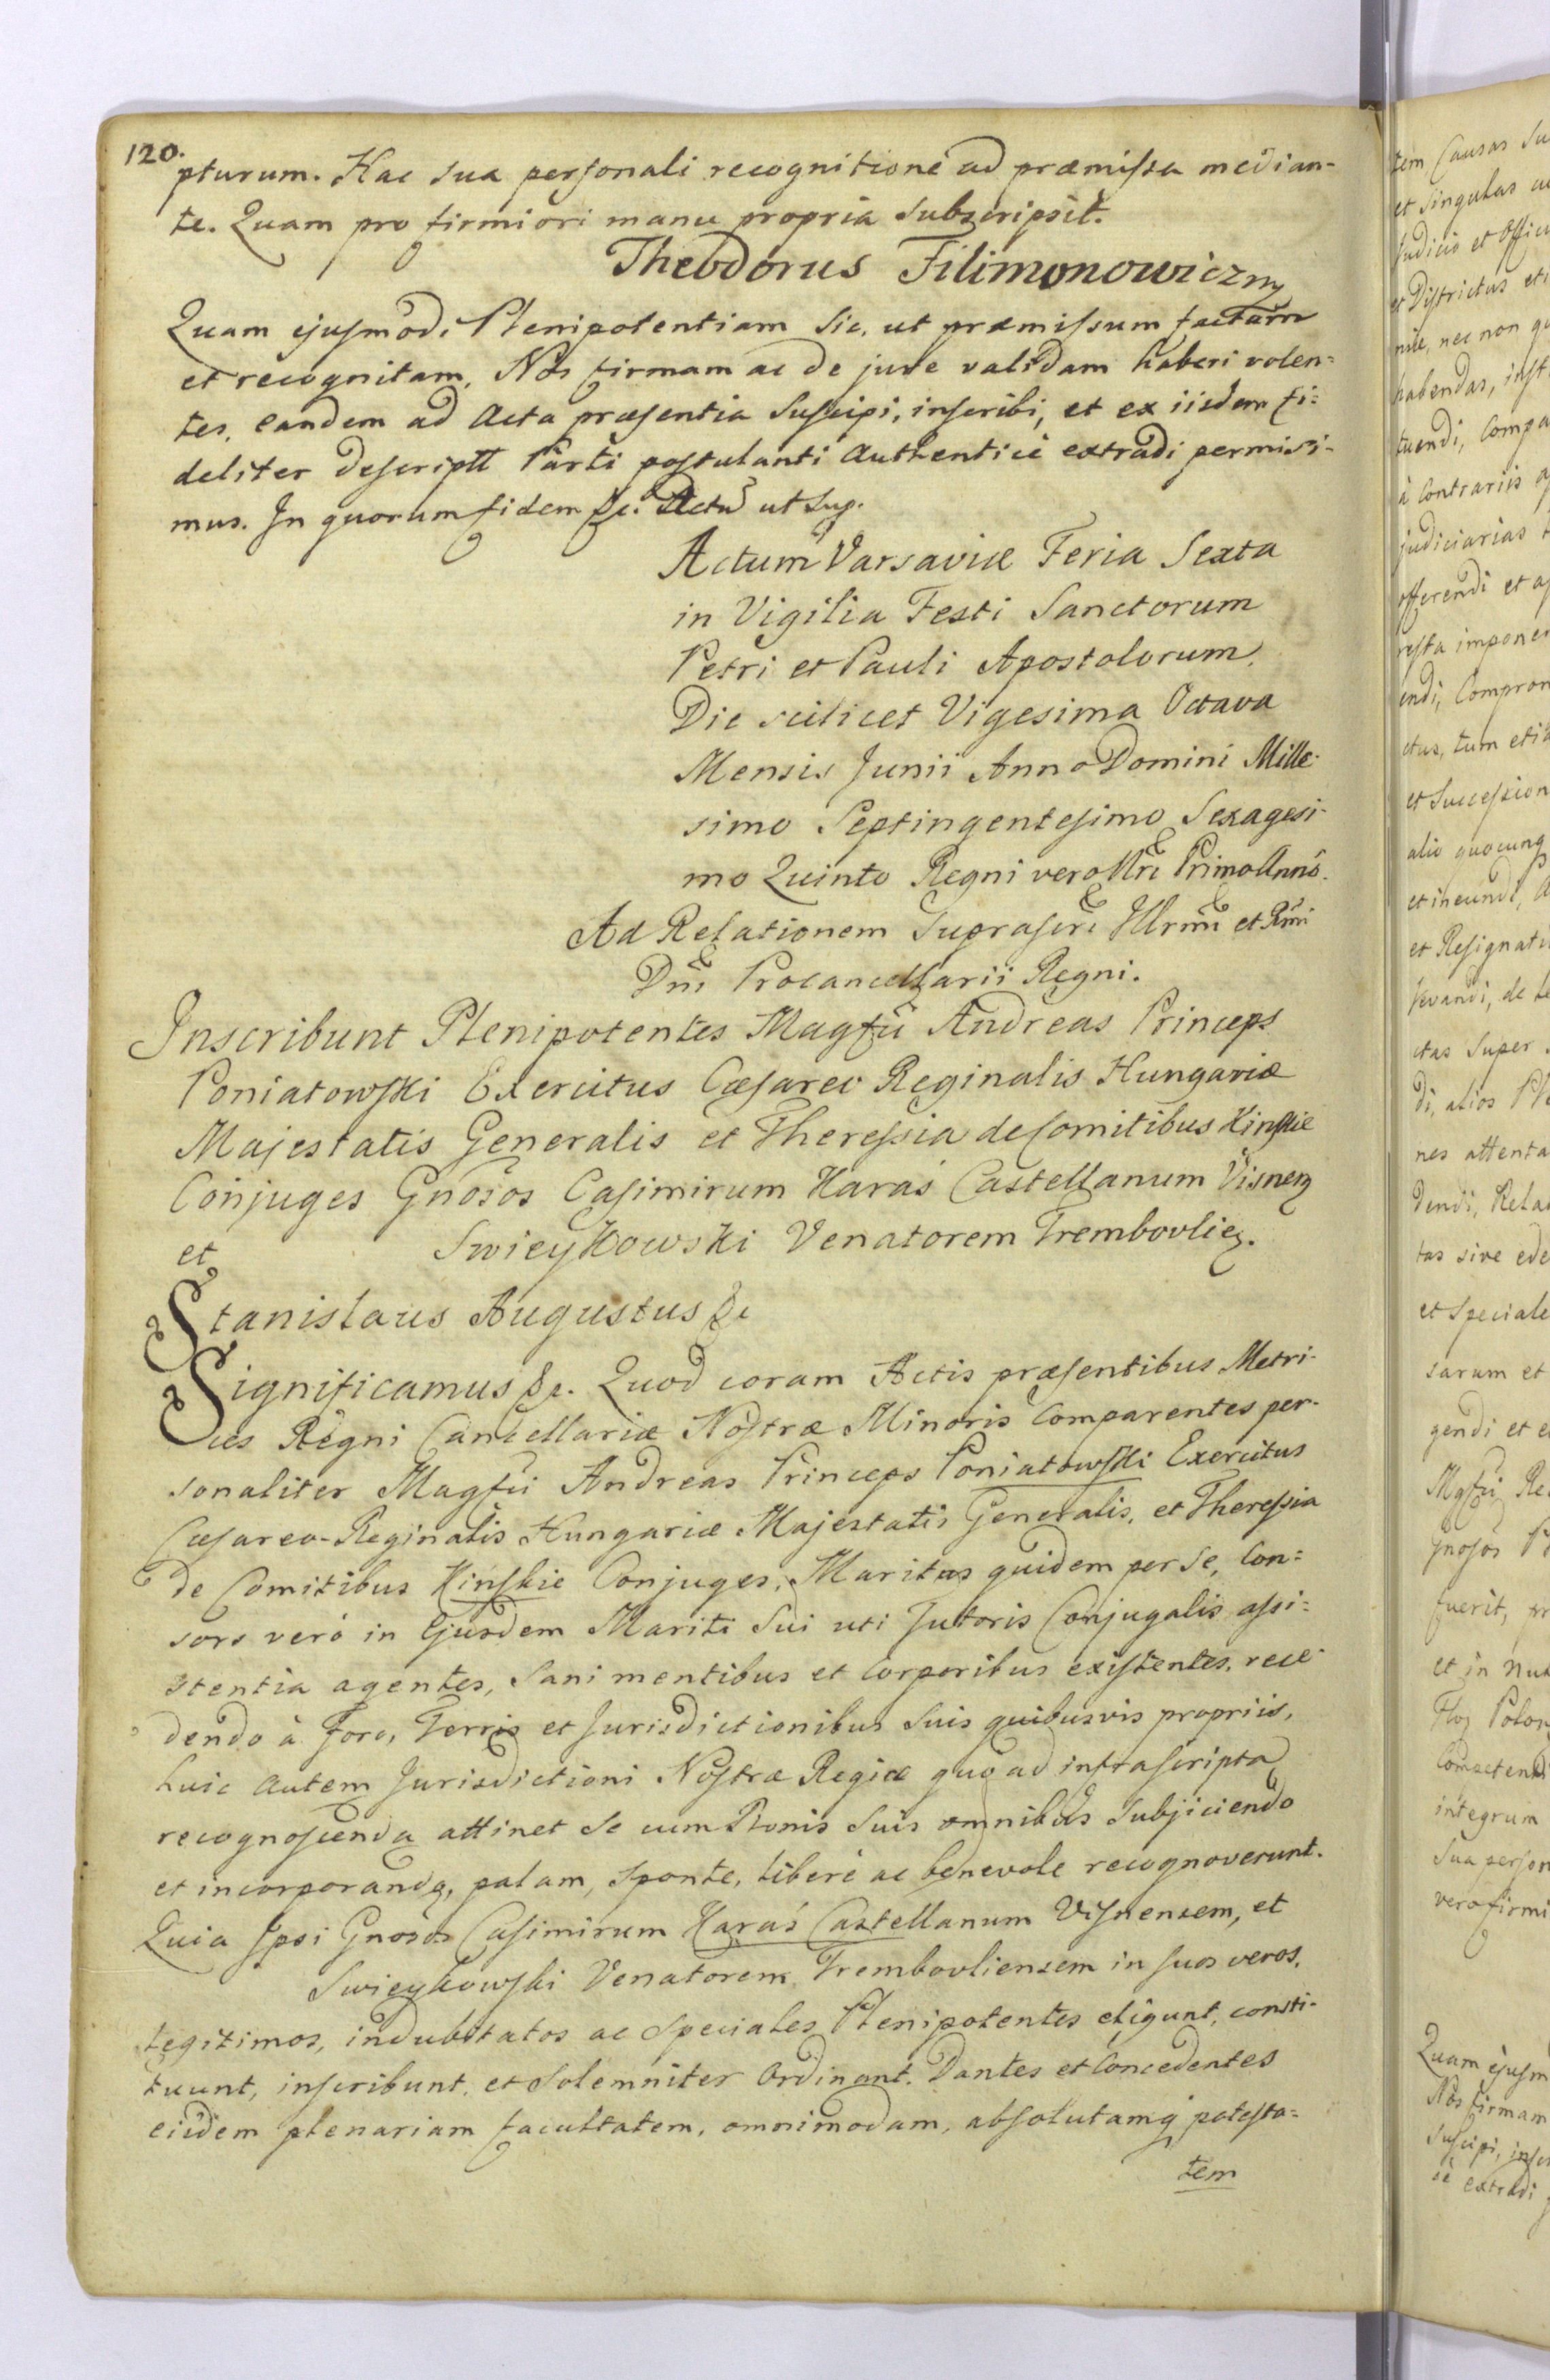 120.
pturum. Hac sua personali recognitione ad præmissa median-
te. Quam pro firmiori manu propria subscripsit.
Theodorus Filimonowicz mp
Quam ejusmodi Plenipotentiam sic, ut præmissum factam
et recognitam, Nos firmam ac de jure validam haberi volen=
tes, eandem ad Acta præsentia Suscipi, inscribi, et ex iisdem fi=
deliter descriptt Parti postulanti Authenticè extradi permisi-
mus. In quorum fidem &c. Actũ ut Sup.
Actum Varsaviæ Feria Sexta
in Vigilia Festi Sanctorum
Petri et Pauli Apostolorum,
Die scilicet Vigesima Octava
Mensis Junii Anno Domini Mille-
simo Septingentesimo Sexagesi-
mo Quinto Regni vero Nri Primo Anno.
Ad Relationem Suprascri Illrmi et Rmi
Dni Procancellarii Regni.
Inscribunt Plenipotentes Magfci Andreas Princeps
Poniatowski Exercitus Cæsareo Reginalis Hungariæ
Majestatis Generalis et Theressia de Comitibus Kinskie
Conjuges Gnosos Casimirum Karaś Castellanum Visnen
et Swieykowski Venatorem Trembovlien.
Stanislaus Augustus &c
Significamus &c. Quod coram Actis præsentibus Metri-
ces Regni Cancellariæ Nostræ Minoris Comparentes per-
sonaliter Magfci Andreas Princeps Poniatowski Exercitus
Cæsareo-Reginalis Hungariæ Majestatis Generalis, et Theressia
de Comitibus Kinskie Conjuges, Maritus quidem per se, Con=
sors verò in Ejusdem Mariti Sui uti Tutoris Conjugalis assi=
stentia agentes, Sani mentibus et Corporibus existentes, rece-
dendo à foro, Terris et Jurisdictionibus Suis quibusvis propriis,
huic autem Jurisdictioni Nostræ Regiæ quo ad infrascripta
recognoscenda attinet Se cum Bonis Suis omnibus Subjiciendo
et incorporando, palam, sponte, liberè ac benevole recognoverunt.
Quia Ipsi Gnosos Casimirum Karaś Castellanum Visnensem, et
Swieykowski Venatorem Trembovliensem in suos veros,
legitimos, indubitatos ac speciales Plenipotentes eligunt, consti-
tuunt, inscribunt, et Solemniter Ordinant. Dantes et Concedentes
eisdem plenariam facultatem, omnimodam, absolutamq potesta=
tem
tem Causas
et Singulas
Judicio et
et Districtus
nec non
habendas,
tuendi,
à Contrariis
judiciarias
offerendi et
imponen
endi,
tum
et
alio quocunq
et ineundi,
et
de
Super
di, alios
nes
dendi,
tas sive
et Speciale
sarum et
gendi et
Mgfci
Gnosos
fuerit,
et in
Polon
integrum
Sua person
vero firmi
Quam ejusm
Nos firmam
Suscipi,
extradi